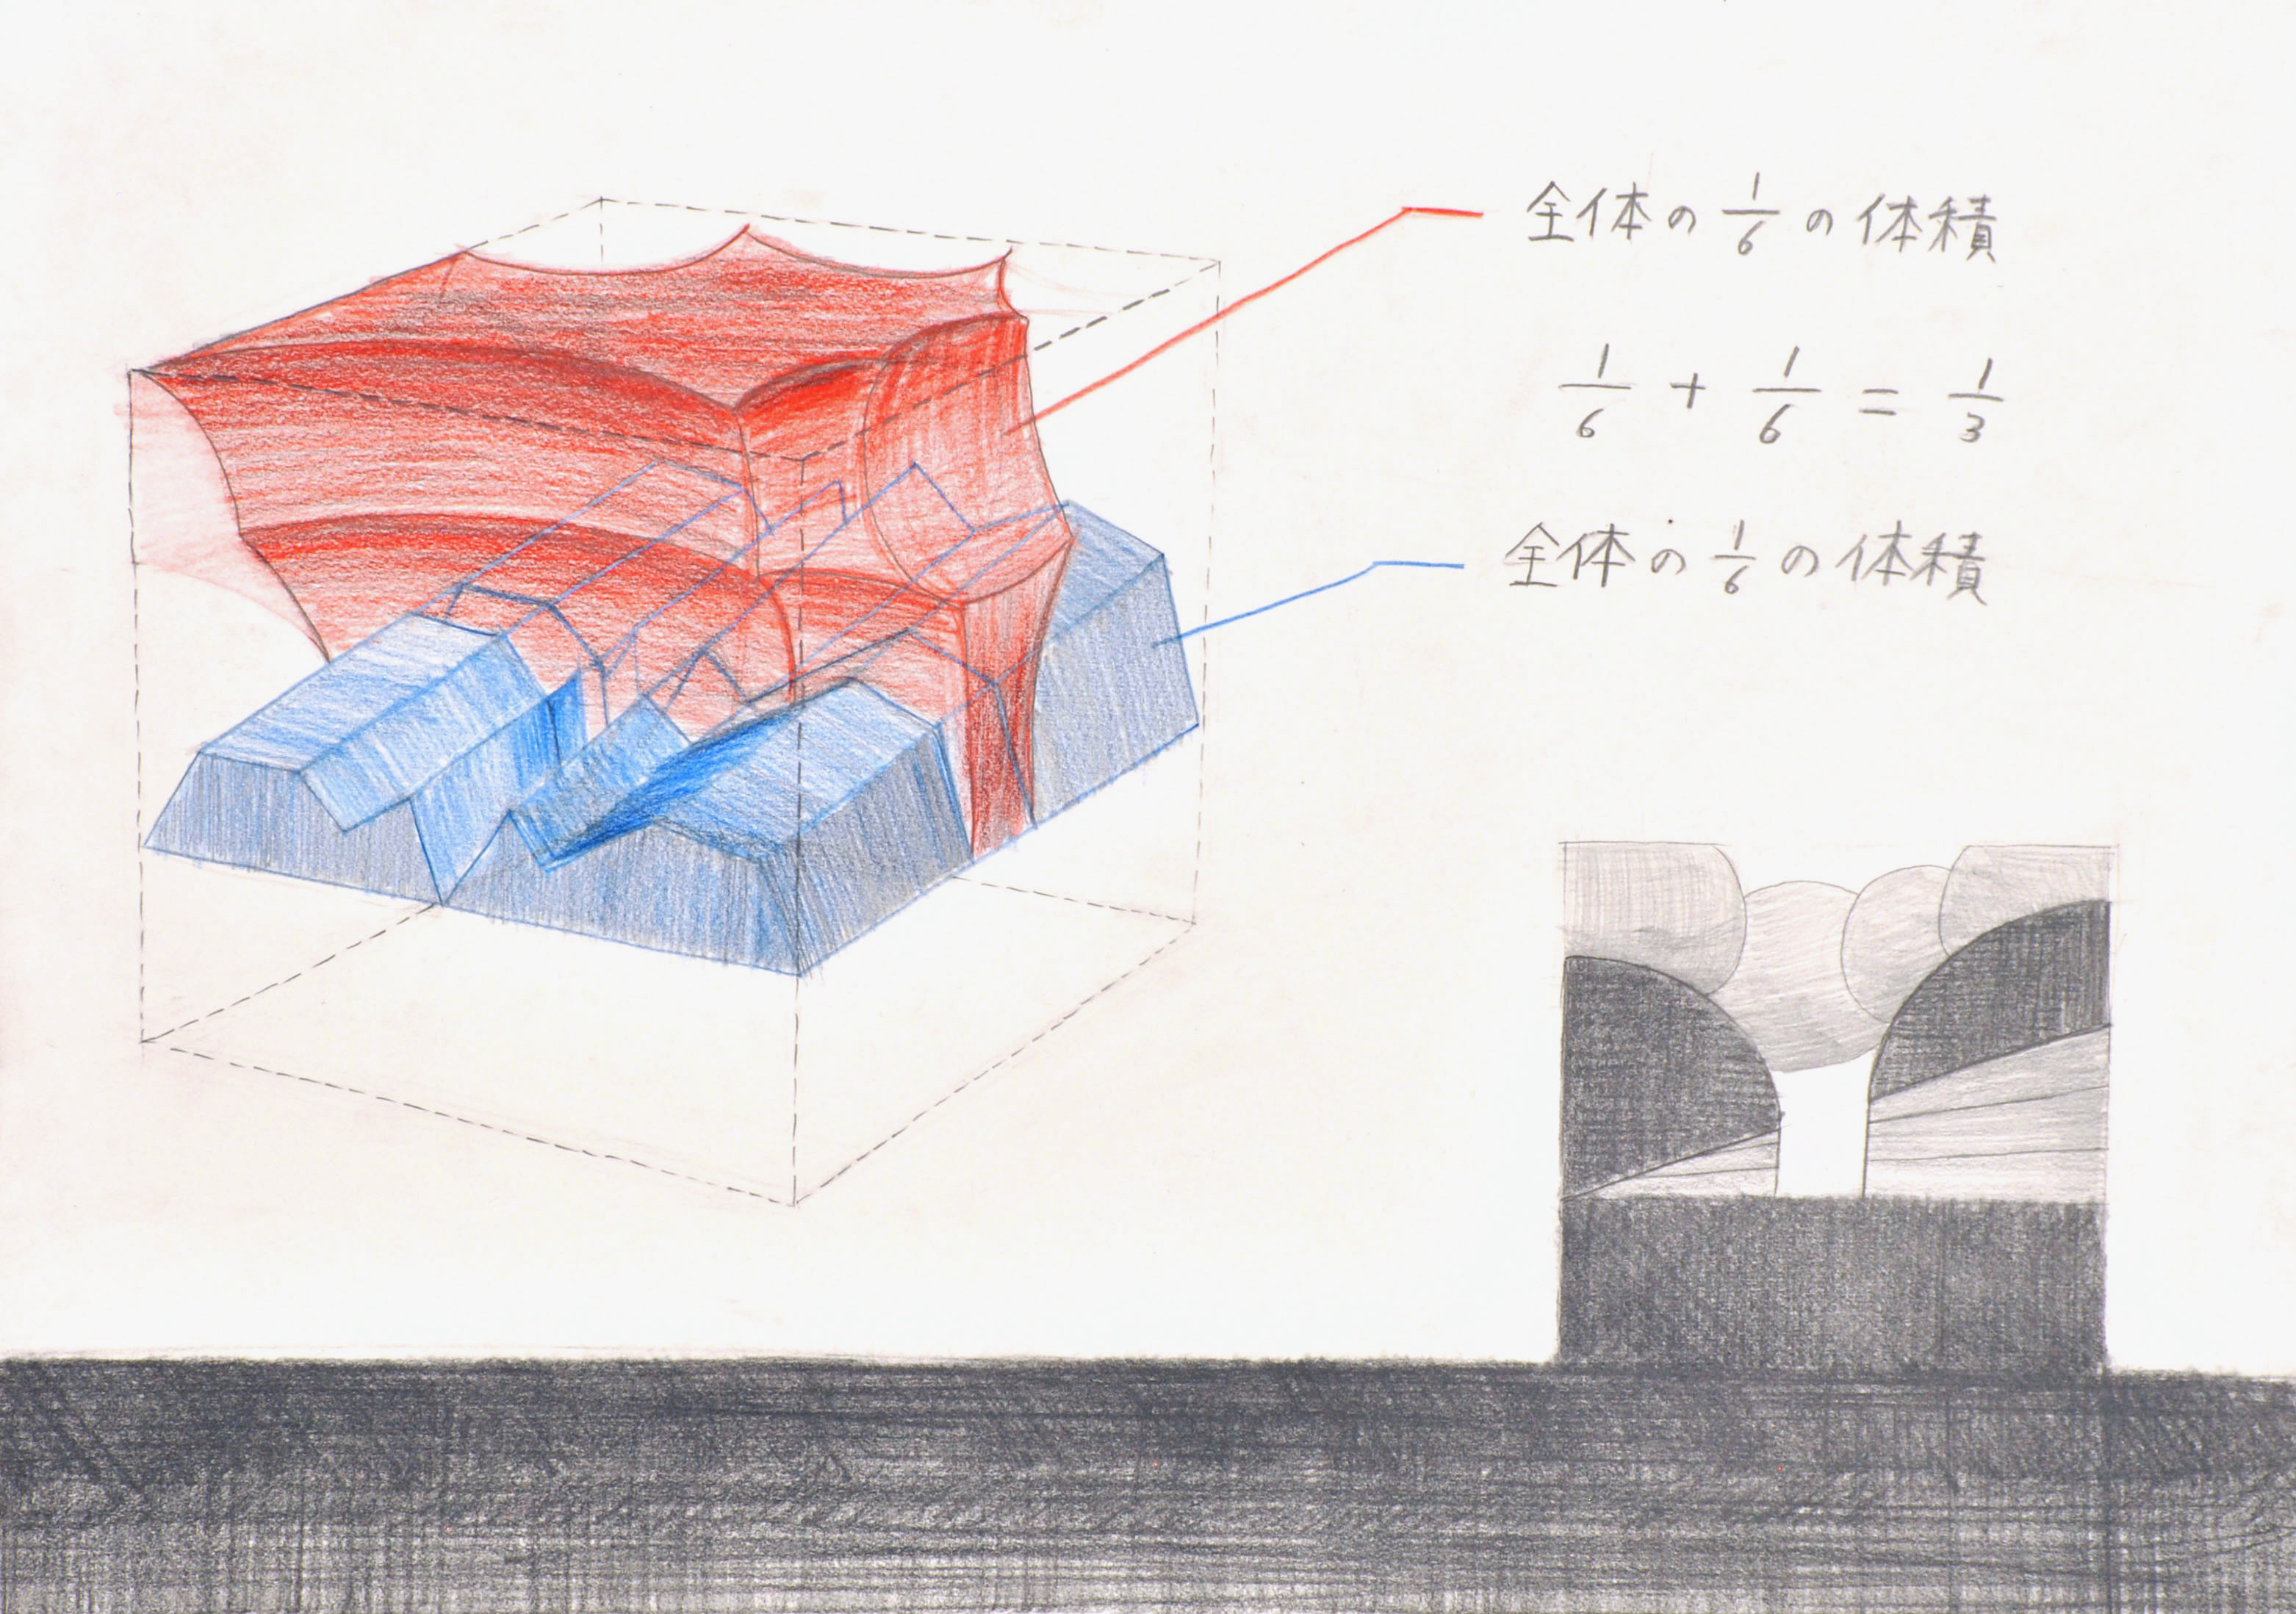 全体の 1/6 の体積
1/6 + 1/6 = 1/3
全体の 1/6 の体積